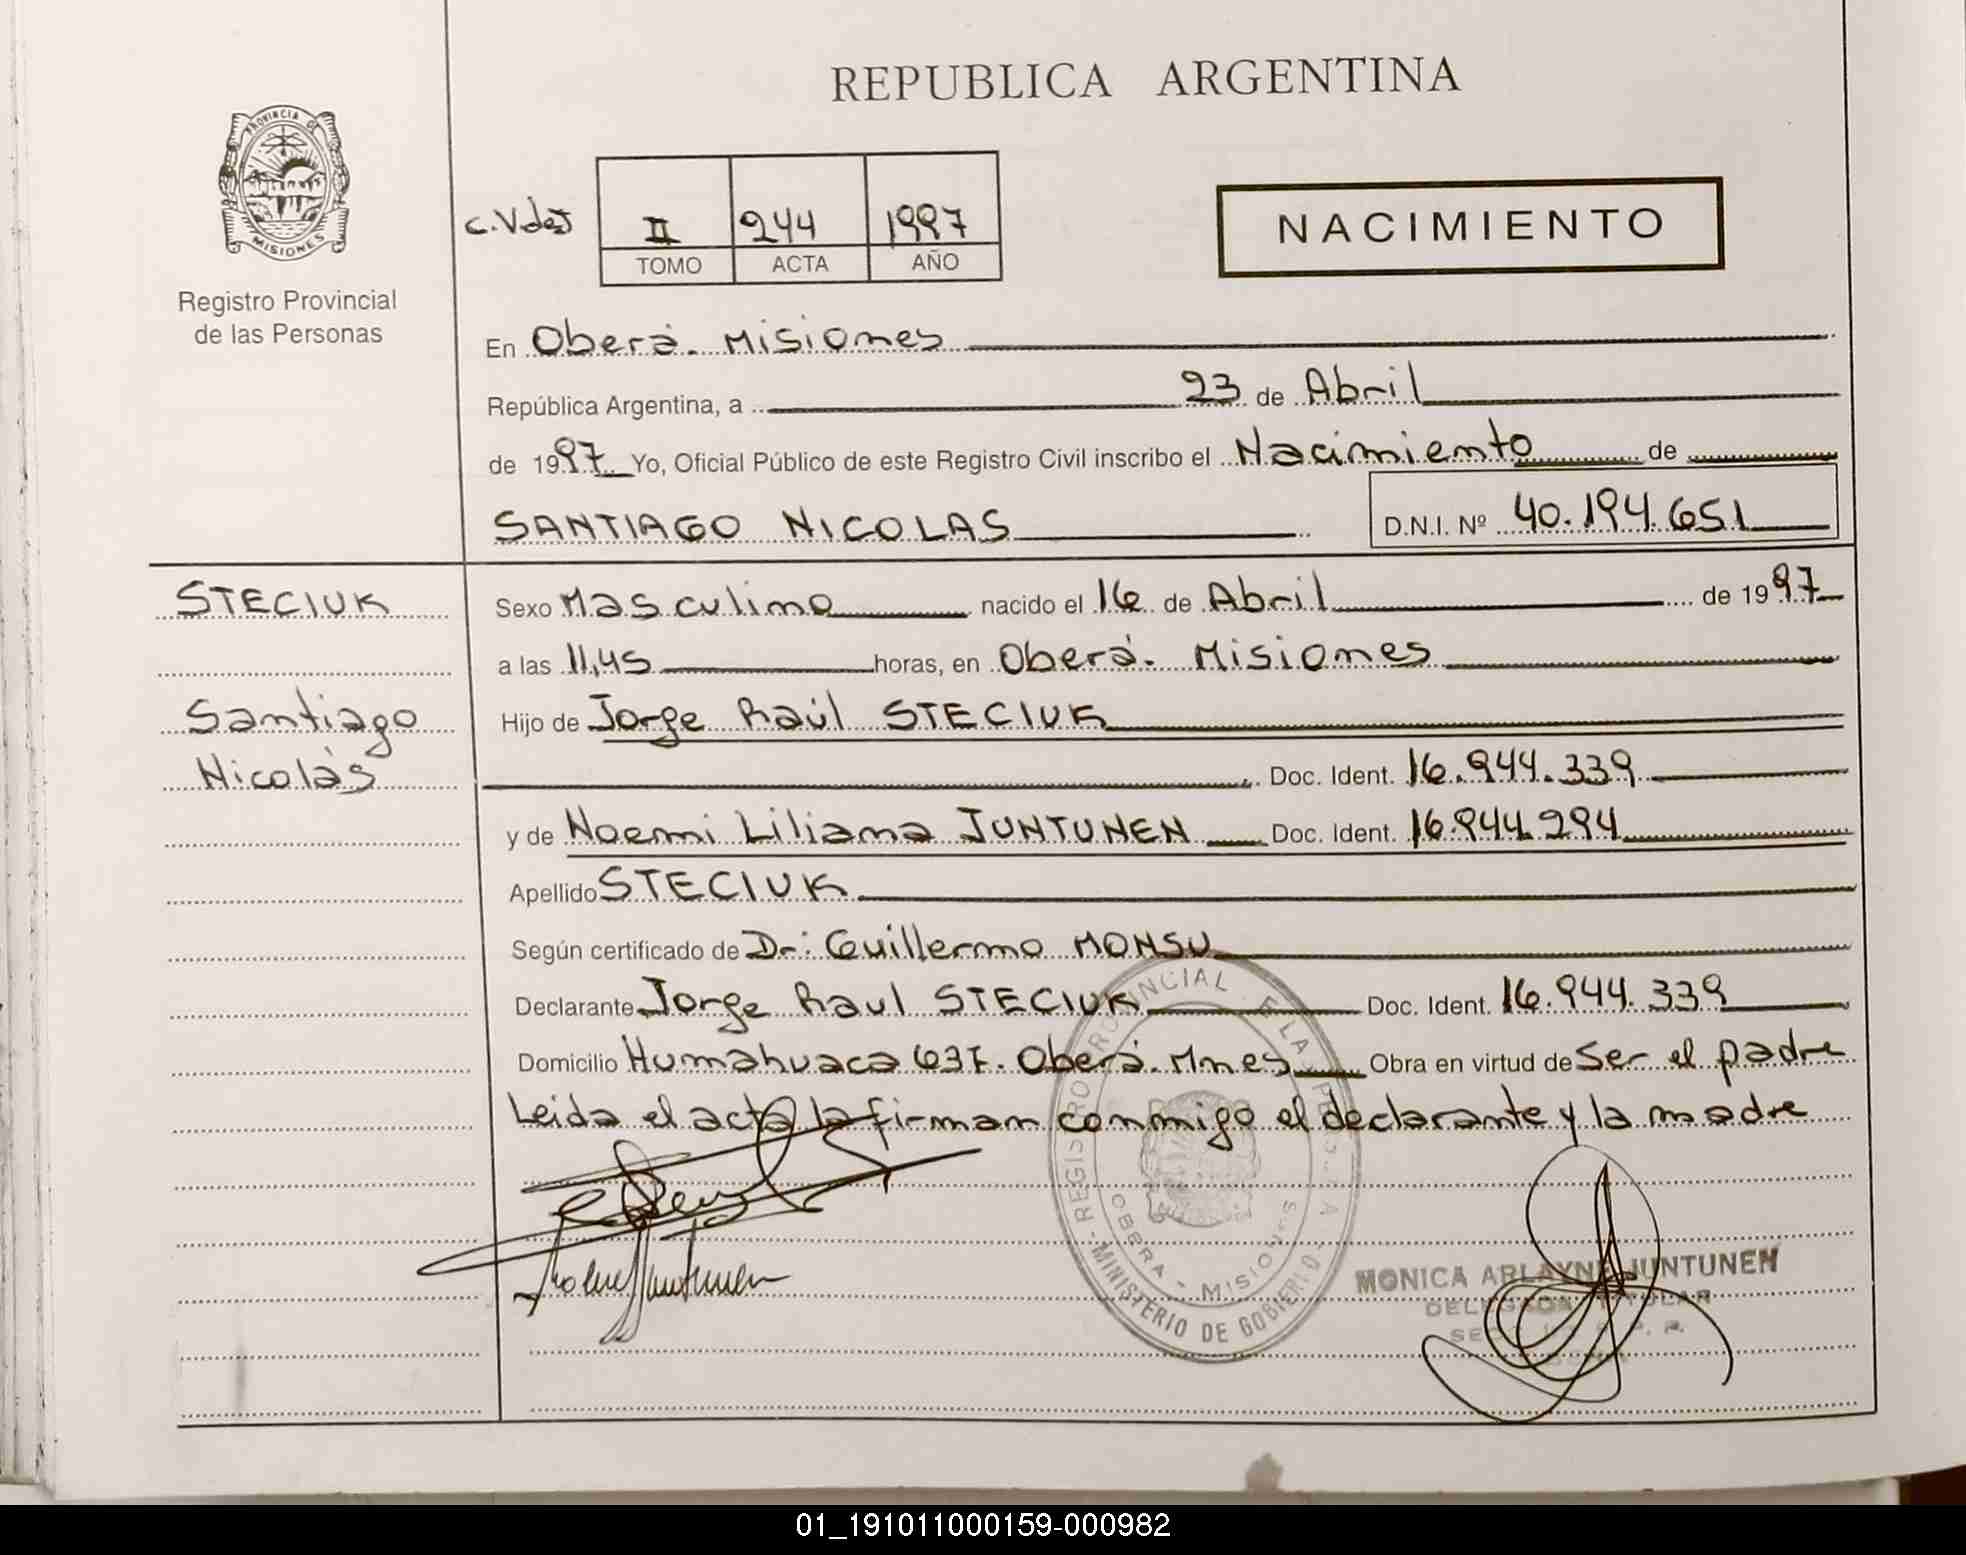 REPUBLICA ARGENTINA
PROVINCIA DE
MISIONES
Registro Provincial
de las Personas
II 244 1997
TOMO ACTA AÑO
NACIMIENTO
En Oberá. Misiones
República Argentina, a 23 de Abril
de 1997 Yo, Oficial Público de este Registro Civil inscribo el Nacimiento de
SANTIAGO NICOLAS D.N.I. Nº 40.194.651
STECIUK
Santiago
Nicolás
Sexo Masculino nacido el 16 de Abril de 1997
a las 11,45 horas, en Oberá. Misiones
Hijo de Jorge Raúl STECIUK
Doc. Ident. 16.944.339
y de Noemi Liliana JUNTUNEN Doc. Ident. 16.944.294
Apellido STECIUK
Según certificado de Dr: Guillermo MONSU
Declarante Jorge Raul STECIUK Doc. Ident. 16.944.339
Domicilio Humahuaca 637. Oberá. Mnes Obra en virtud de Ser el padre
Leida el acta la firman conmigo el declarante y la madre
REGISTRO PROVINCIAL DE LAS
MINISTERIO DE GOBIERNO
OBERA - MISIONES
MONICA ARLAYNE JUNTUNEN
DELEGADA TITULAR
01_191011000159-000982